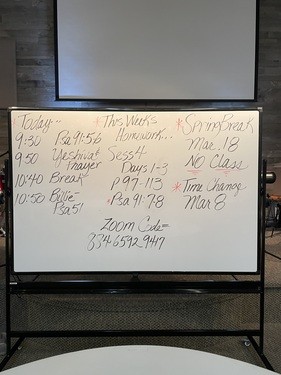 Today..
9:30 Psa 91:5-6
9:50 Yeshivat
Prayer
10:40 Break
10:50 Billie-
Psa 51
*This Week's
Homework...
Sess 4
Days 1-3
p 97-113
*Psa 91:7-8
*Spring Break
Mar. 18
NO Class
*Time Change
Mar 8
Zoom Code=
334-6592-9417